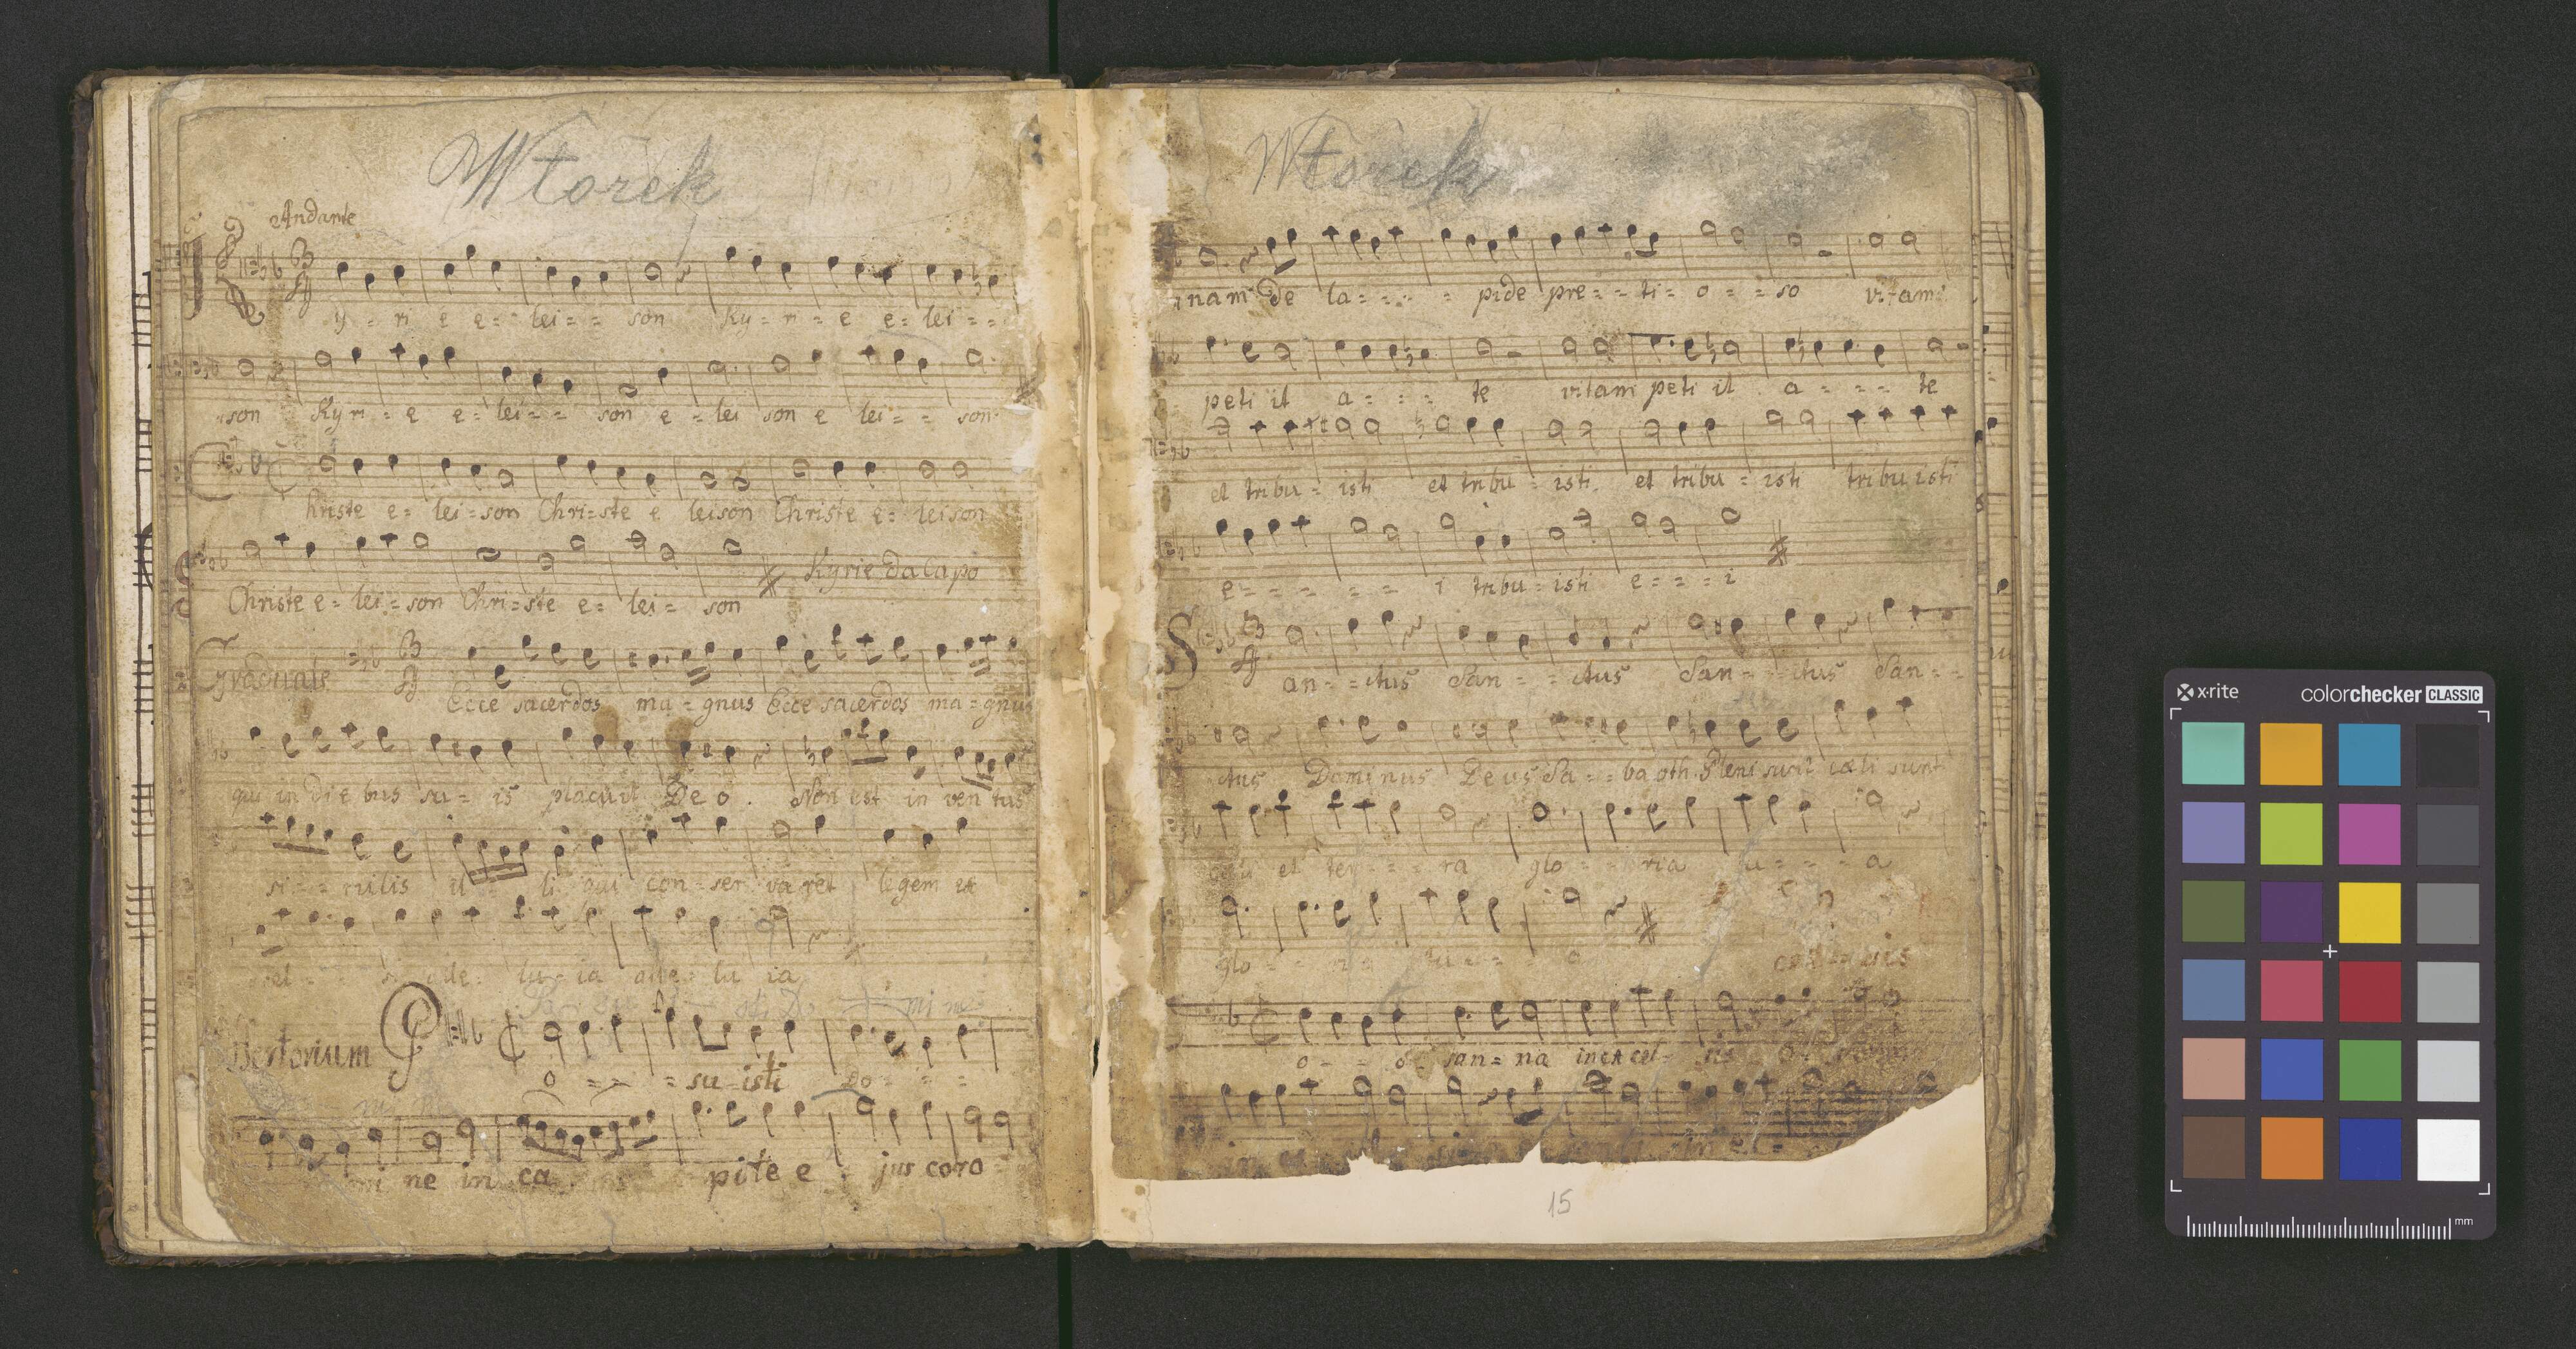 Wtorek
Andante
y = ri e e = lei = = son Ky = ri = e e = lei = =
son Ky ri = e e = lei = = son e = lei son e lei = = son
hriste e = lei = son Chri = ste e leison Christe e = leison
Kyrie Da Capo
Christe e = lei = son Chri = ste e = lei = son
Graduale
Ecce sacerdos ma = gnus Ecce sacerdos ma = gnus
qui in die bus su = is placuit De o. Non est in ven tus
si = = milis il li qui con = ser va ret legem ex
el lu = ia alle = lu ia
mi ne
ffertorium P
o = = = su = isti Do = = =
mi ne in ca pite e jus coro =
Wtorek
nam De la = = = = pide pre = = ti = o = = so vi = tam
peti it a = = = te vitam peti it a = = = te
et tribu = isti et tribu = isti et tribu = isti tribu isti
e = = = = = i tribu = isti e = = = i
S
an = = ctus San = = ctus San = = ctus San = =
ctus Dominus Deus Sa = = ba oth Pleni sunt cæli sunt
et ter = = = ra glo = = ria tu = = = a
glo = = tu = = = a
o = = o = san = na in excel = sis o
in
15
x·rite colorchecker CLASSIC
mm